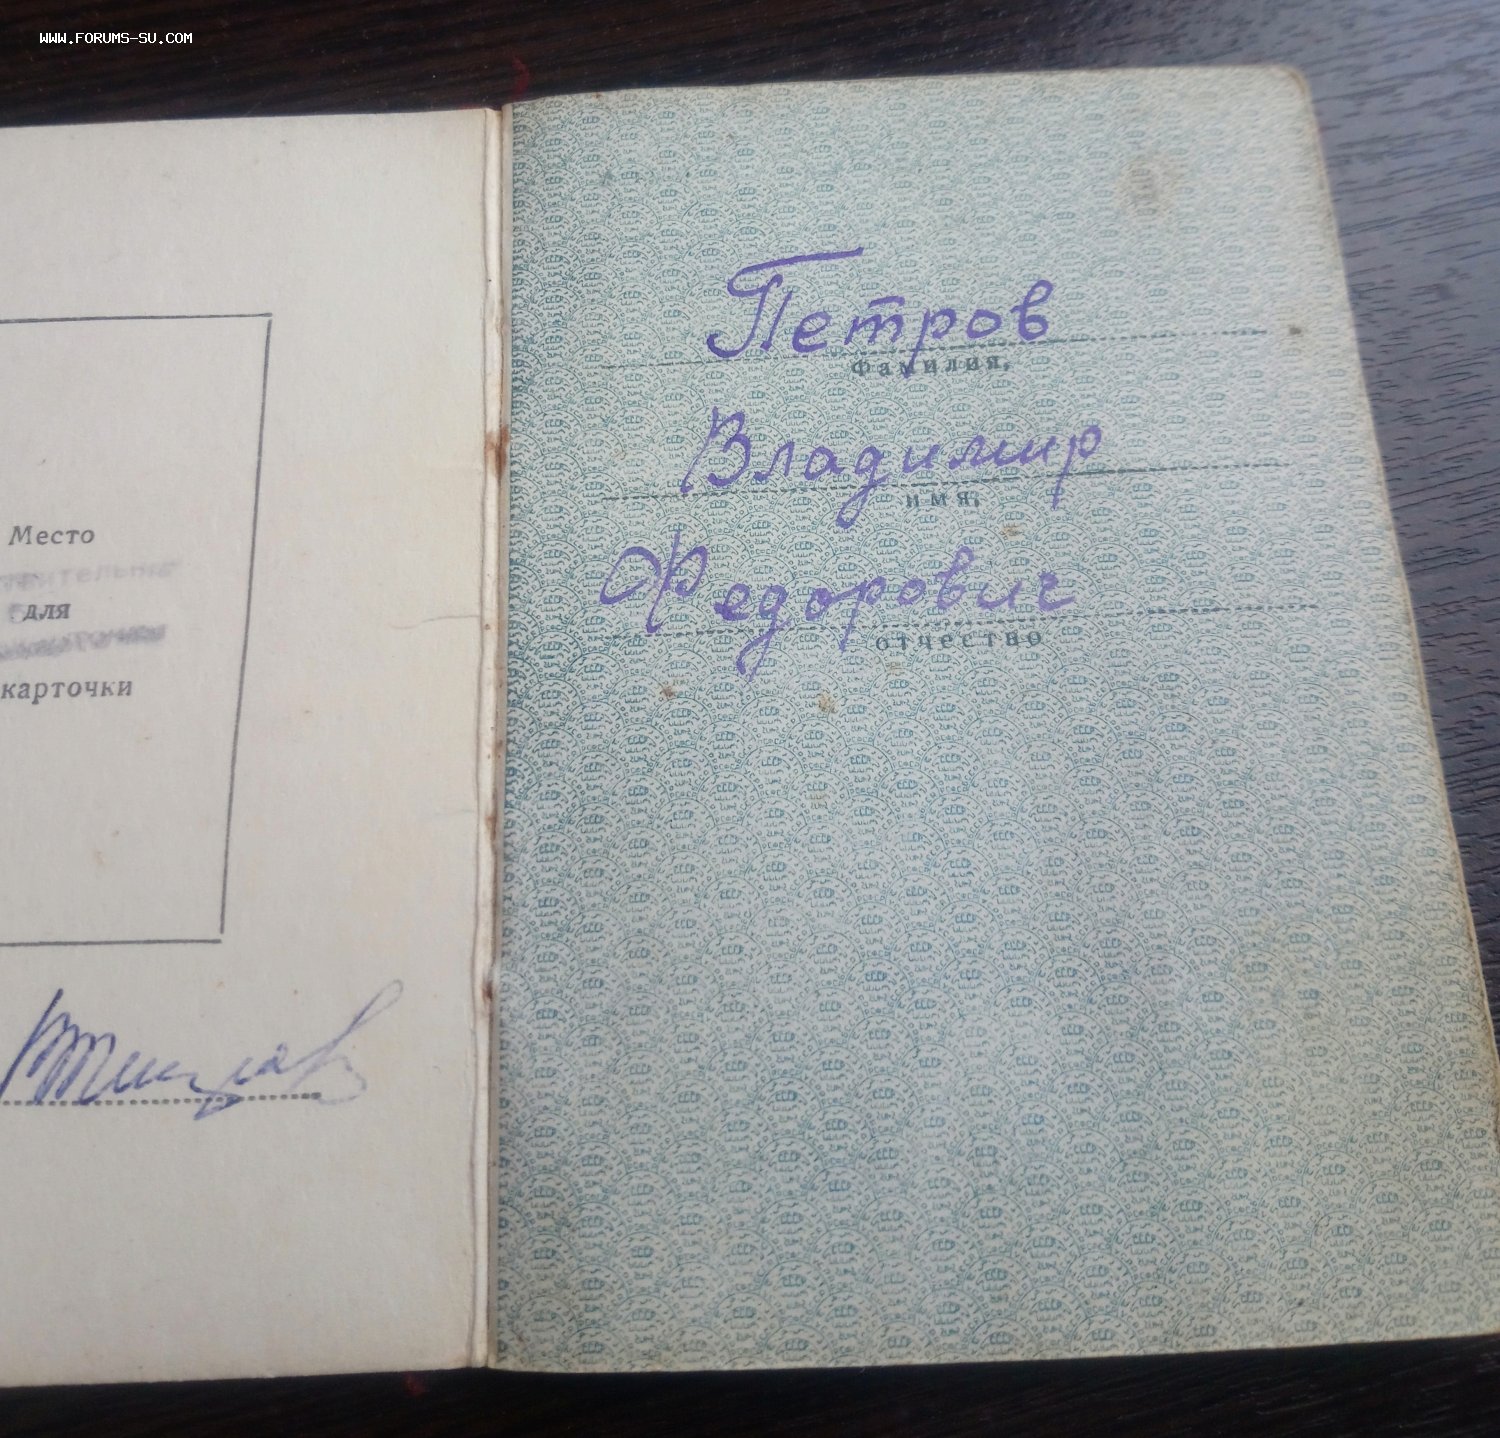 WWW.FORUMS-SU.COM
Место
для
карточки
Петров
Фамилия,
Владимир
имя,
Федорович
отчество